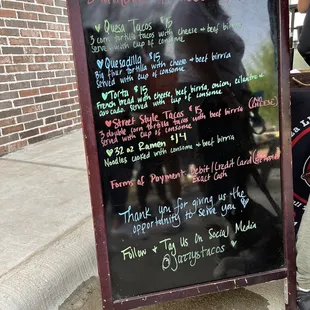 Quesa Tacos $15
3 corn tortilla tacos with cheese & beef birria
Serve with cup of consome
Quesadilla $15
Big flour tortilla with cheese & beef birria
Served with cup of consome
Torta $15
French bread with cheese, beef birria, onion, cilantro &
avocado. Served with cup of consome
Street Style Tacos $15
3 double corn tortilla tacos with beef birria
Served with cup of consome
32 oz Ramen $14
Noodles cooked with consome & beef birria
Forms of Payment: Debit/Credit Card
Exact Cash
Thank you for giving us the
opportunity to serve you!
Follow & Tag Us On Social Media
@jazzystacos